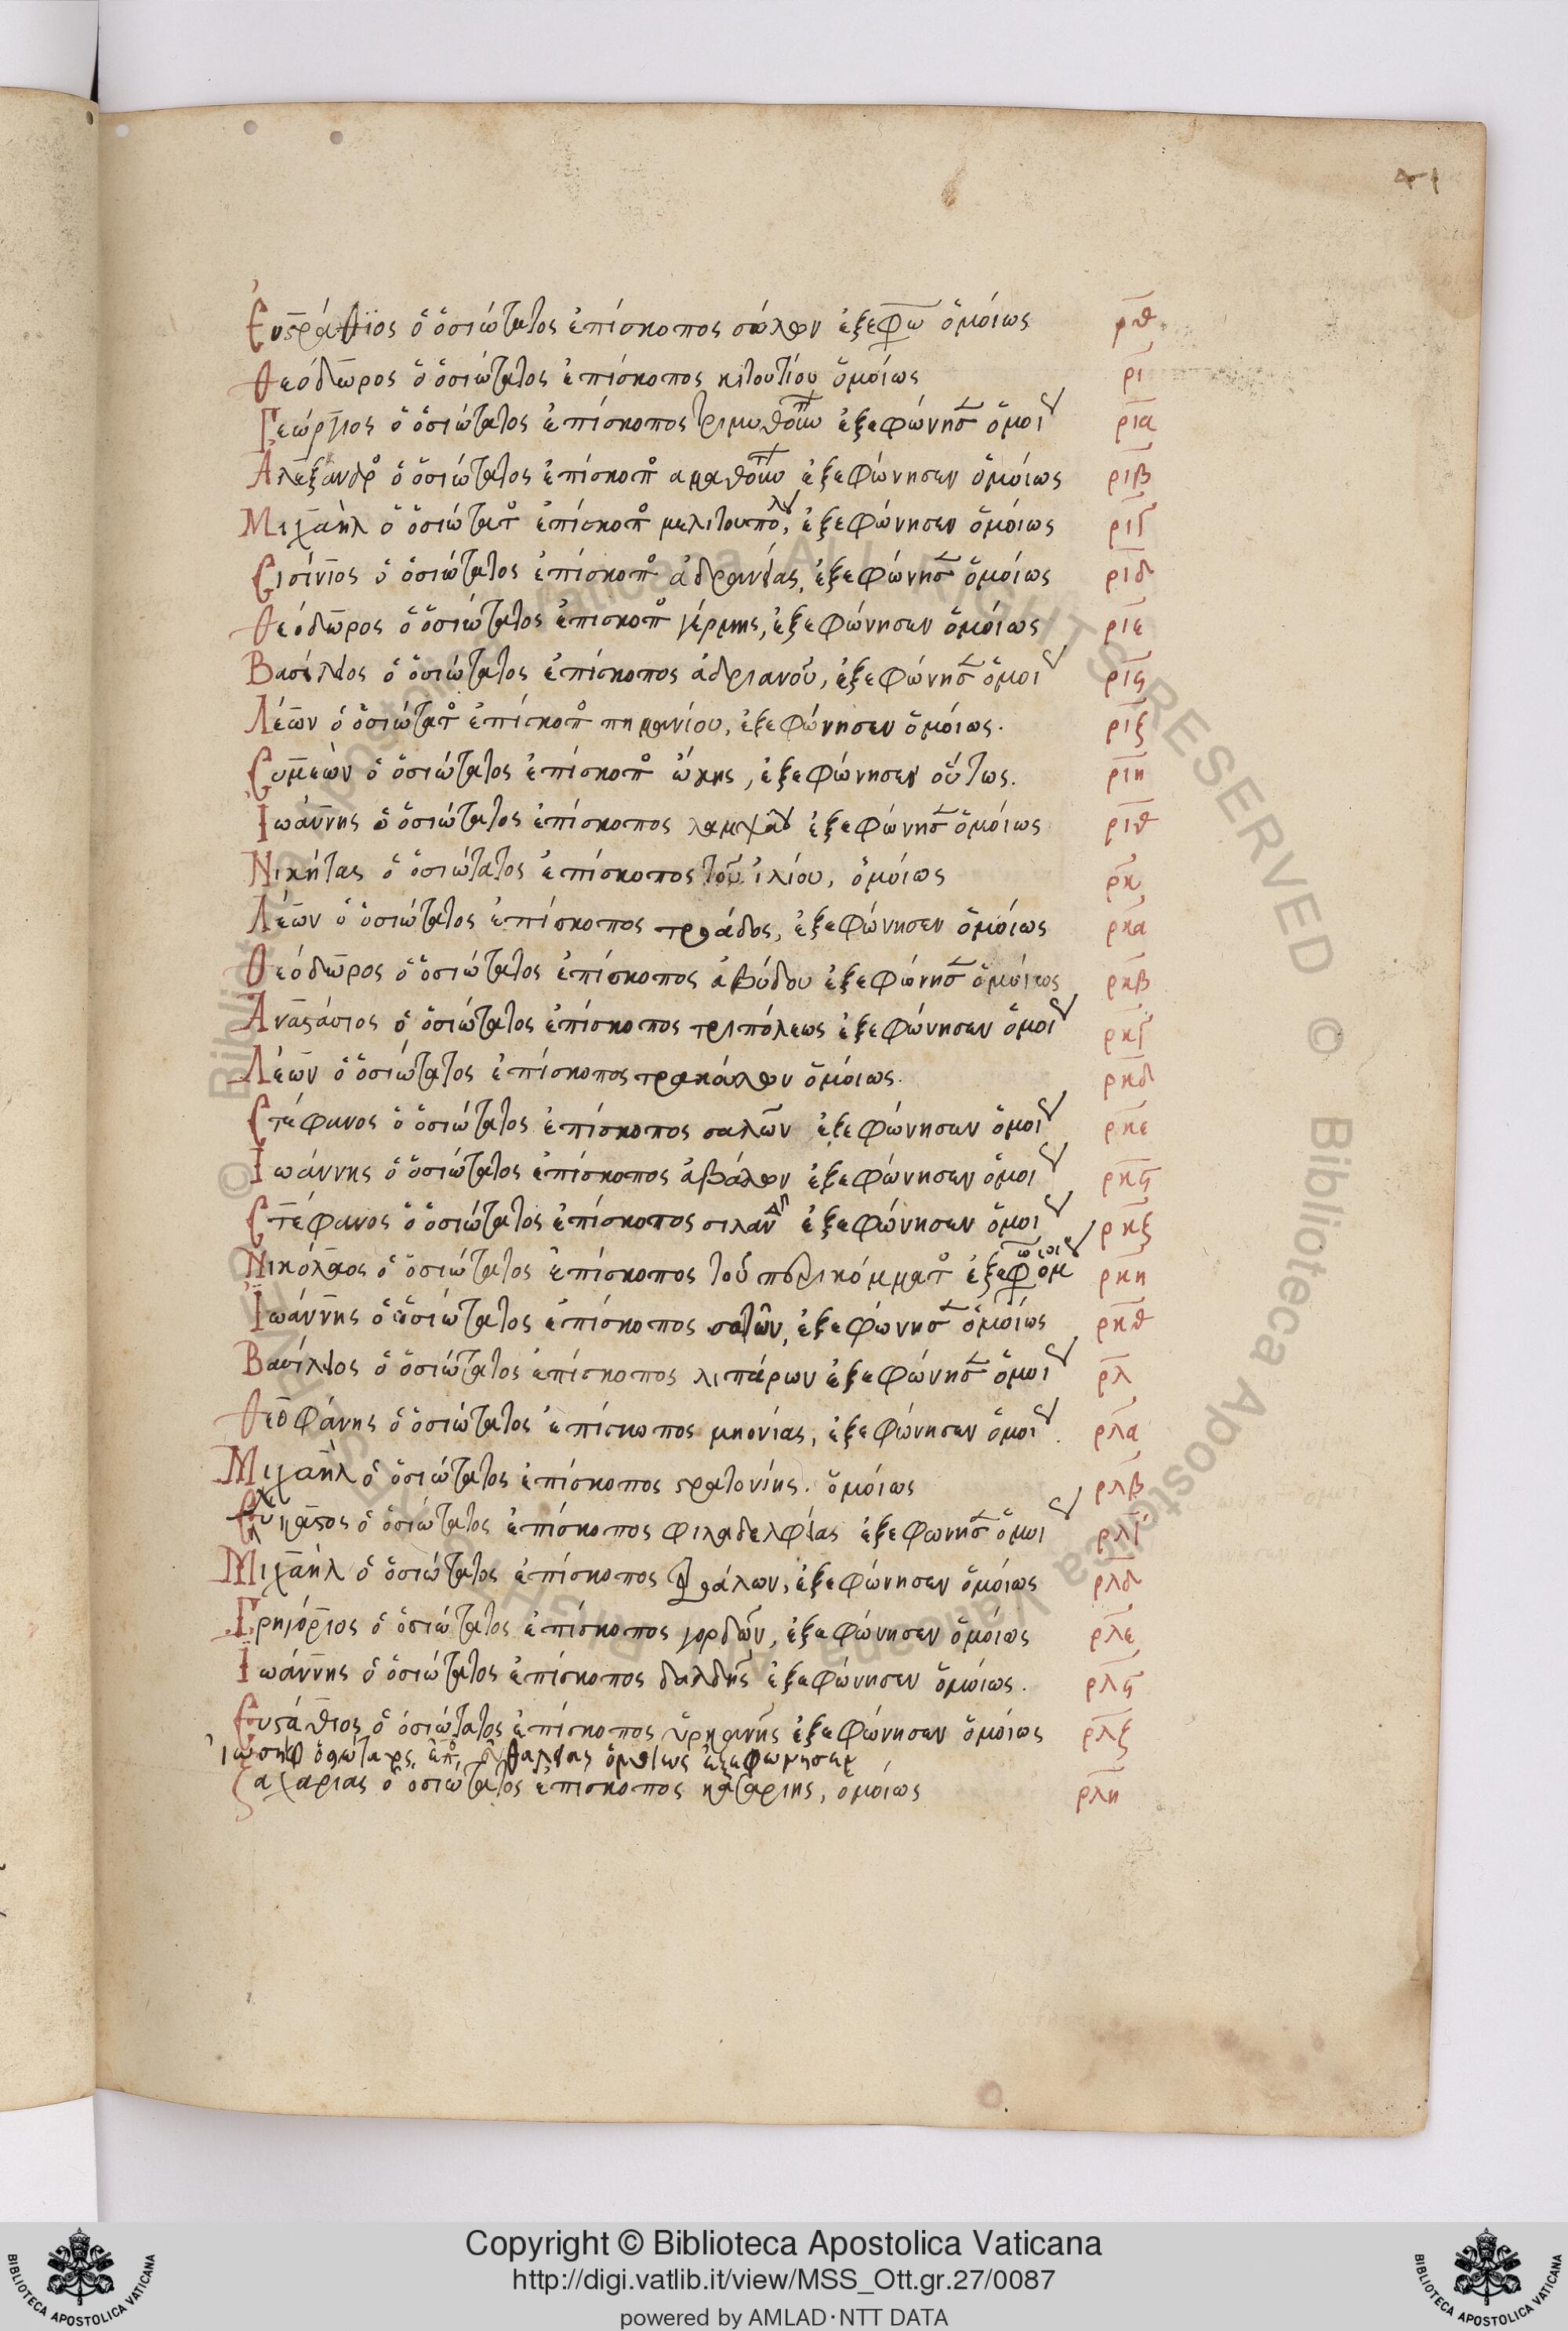 41
Εὐστράθιος ὁ ὁσιώτατος ἐπίσκοπος σόλων ἐξεφω ὁμοίως ρθ
Θεόδωρος ὁ ὁσιώτατος ἐπίσκοπος κιτουτίου ὁμοίως ρι
Γεώργιος ὁ ὁσιώτατος ἐπίσκοπος τριμυθουν ἐξεφώνησ ὁμοι ρια
Ἀλέξανδρ ὁ ὁσιώτατος ἐπίσκοπ αμαθουν ἐξεφώνησεν ὁμοίως ριβ
Μιχαὴλ ὁ ὁσιώτατ ἐπίσκοπ μελιτουπόλ, ἐξεφώνησεν ὁμοίως ριγ
Σισίννιος ὁ ὁσιώτατος ἐπίσκοπ ἀδρανείας, ἐξεφώνησ ὁμοίως ριδ
Θεόδωρος ὁ ὁσιώτατος ἐπισκοπ γέρμης, ἐξεφώνησεν ὁμοίως ριε
Βασίλειος ὁ ὁσιώτατος ἐπίσκοπος ἀδριανοῦ, ἐξεφώνησ ὁμοι ρις
Λέων ὁ ὁσιώτατ ἐπίσκοπ πημανίου, ἐξεφώνησεν ὁμοίως. ριζ
Συμεὼν ὁ ὁσιώτατος ἐπίσκοπ ὤκης, ἐξεφώνησεν οὕτως. ριη
Ἰωάννης ὁ ὁσιώτατος ἐπίσκοπος λαμψάκου ἐξεφώνησ ὁμοίως ριθ
Νικήτας ὁ ὁσιώτατος ἐπίσκοπος τοῦ ἰλίου, ὁμοίως ρκ
Λέων ὁ ὁσιώτατος ἐπίσκοπος τρωάδος, ἐξεφώνησεν ὁμοίως ρκα
Θεόδωρος ὁ ὁσιώτατος ἐπίσκοπος ἀβύδου ἐξεφώνησ ὁμοίως ρκβ
Ἀναστάσιος ὁ ὁσιώτατος ἐπίσκοπος τριπόλεως ἐξεφώνησεν ὁμοι ρκγ
Λέων ὁ ὁσιώτατος ἐπίσκοπος τρακάλων ὁμοίως. ρκδ
Στέφανος ὁ ὁσιώτατος ἐπίσκοπος σαλῶν ἐξεφώνησεν ὁμοι ρκε
Ἰωάννης ὁ ὁσιώτατος ἐπίσκοπος ἀβάλων ἐξεφώνησεν ὁμοι ρκς
Στέφανος ὁ ὁσιώτατος ἐπίσκοπος σιλανδ ἐξεφώνησεν ὁμοι ρκζ
Νικόλαος ὁ ὁσιώτατος ἐπίσκοπος τοῦ περικόμματ ἐξεφω ὁμοι ρκη
Ἰωάννης ὁ ὁσιώτατος ἐπίσκοπος σατῶν, ἐξεφώνησ ὁμοίως ρκθ
Βασίλειος ὁ ὁσιώτατος ἐπίσκοπος λιπάρων ἐξεφώνησ ὁμοι ρλ
Θεοφάνης ὁ ὁσιώτατος ἐπίσκοπος μηονίας, ἐξεφώνησεν ὁμοι. ρλα
Μιχαὴλ ὁ ὁσιώτατος ἐπίσκοπος στρατονίκης. ὁμοίως ρλβ
Λυκαστος ὁ ὁσιώτατος ἐπίσκοπος φιλαδελφείας ἐξεφωνησ ὁμοι ρλγ
Μιχαὴλ ὁ ὁσιώτατος ἐπίσκοπος τράλων, ἐξεφώνησεν ὁμοίως ρλδ
Γρηγόριος ὁ ὁσιώτατος ἐπίσκοπος γορδῶν, ἐξεφώνησεν ὁμοίως ρλε
Ἰωάννης ὁ ὁσιώτατος ἐπίσκοπος δαλδης ἐξεφώνησεν ὁμοίως. ρλς
Εὐστάθιος ὁ ὁσιώτατος ἐπίσκοπος ὑρκανής ἐξεφώνησεν ὁμοίως ρλζ
Ἰωσὴφ ἐπ, ὁμοίως ἐξεφωνησεν
Ζαχαρίας ὁ ὁσιώτατος ἐπίσκοπος ομοίως ρλη
Copyright © Biblioteca Apostolica Vaticana
http://digi.vatlib.it/view/MSS_Ott.gr.27/0087
powered by AMLAD·NTT DATA
BIBLIOTECA APOSTOLICA VATICANA
BIBLIOTECA APOSTOLICA VATICANA